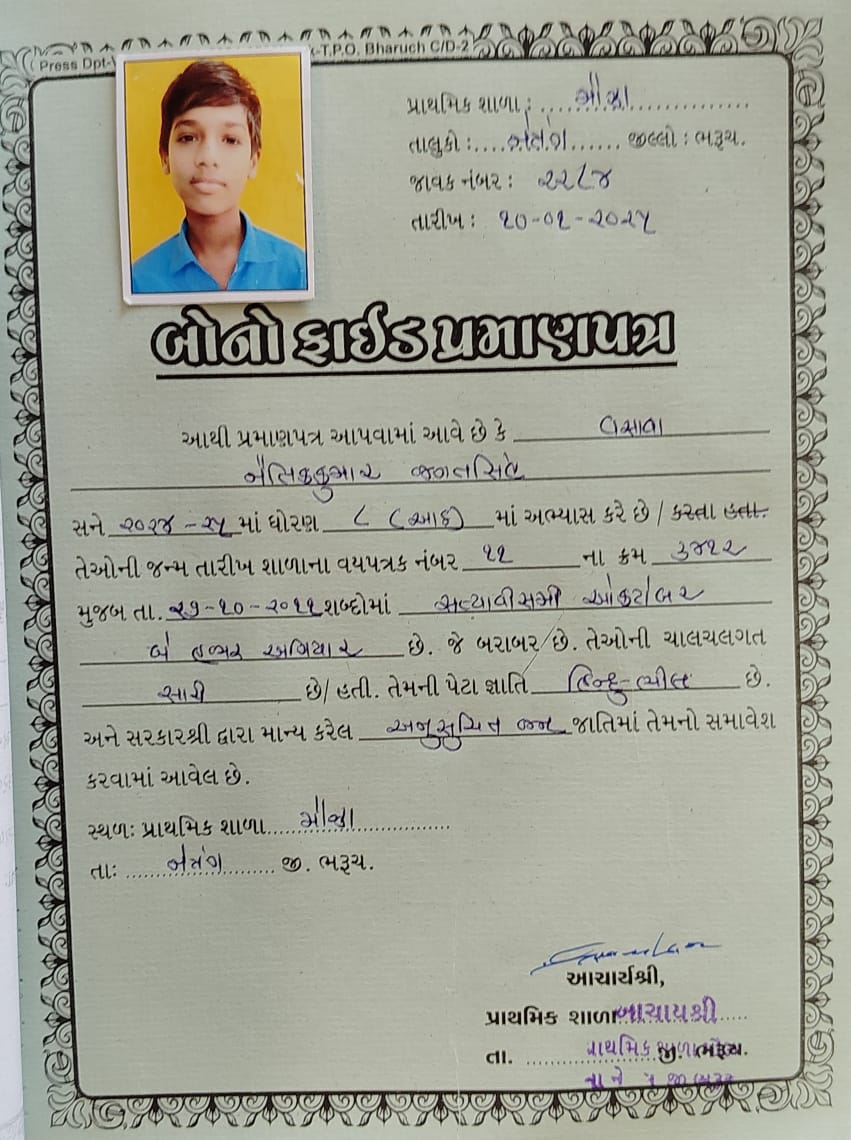 Press Dpt-
-T.P.O. Bharuch C/D-2
પ્રાથમિક શાળા : મૌઝા
તાલુકો : નેત્રંગ જીલ્લો : ભરૂચ.
જાવક નંબર : ૨૨૮૪
તારીખ : ૧૦-૦૧-૨૦૨૫
બોનો ફાઈડ પ્રમાણપત્ર
આથી પ્રમાણપત્ર આપવામાં આવે છે કે વસાવા
નૈતિકકુમાર જગતસિંહ
સને ૨૦૨૪-૨૫ માં ધોરણ ૮ (આઠ) માં અભ્યાસ કરે છે / કરતા હતા.
તેઓની જન્મ તારીખ શાળાના વયપત્રક નંબર ૧૧ ના ક્રમ ૩૪૧૨
મુજબ તા. ૨૭-૧૦-૨૦૧૧ શબ્દોમાં સત્યાવીસમી ઓક્ટોબર
બે હજાર અગિયાર છે. જે બરાબર છે. તેઓની ચાલચલગત
સારી છે/ હતી. તેમની પેટા જ્ઞાતિ હિન્દુ-ભીલ છે.
અને સરકારશ્રી દ્વારા માન્ય કરેલ અનુસુચિત જન જાતિમાં તેમનો સમાવેશ
કરવામાં આવેલ છે.
સ્થળ: પ્રાથમિક શાળા મૌઝા
તા: નેત્રંગ જી. ભરૂચ.
આચાર્યશ્રી,
પ્રાથમિક શાળા આચાર્યશ્રી
તા. પ્રાથમિક શાળા જી. ભરૂચ.